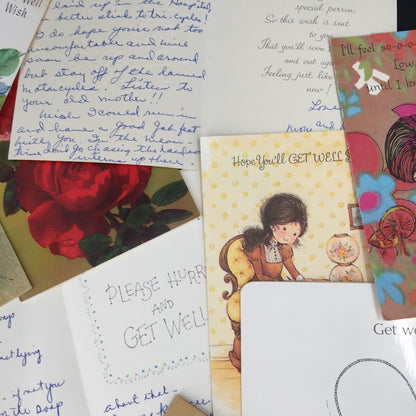 Well
Wish
laid up in the Hospital,
better stick to tri-cycles!
do hope you're not too
uncomfortable and will
soon be up and around
but stay off of the damned
motorcycles. Listen to
your old mother!!
Wish I could run in
and have a good gab fest
with you. In the mean
time don't go chasing the
interns up there.
special person
So this wish is sent
to you
That you'll soon be
and out again
Feeling just like
new!
Love
Mom and
I'll feel so-o-o-
Low
until I k
Hope You'll GET WELL S
PLEASE HURRY
AND
GET WELL
Get we
soap
lying
if not you
the soap
about that